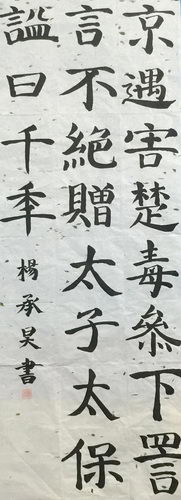 京遇害楚毒叅下詈
言不絕贈太子太保
謚曰千秊
楊承昊書